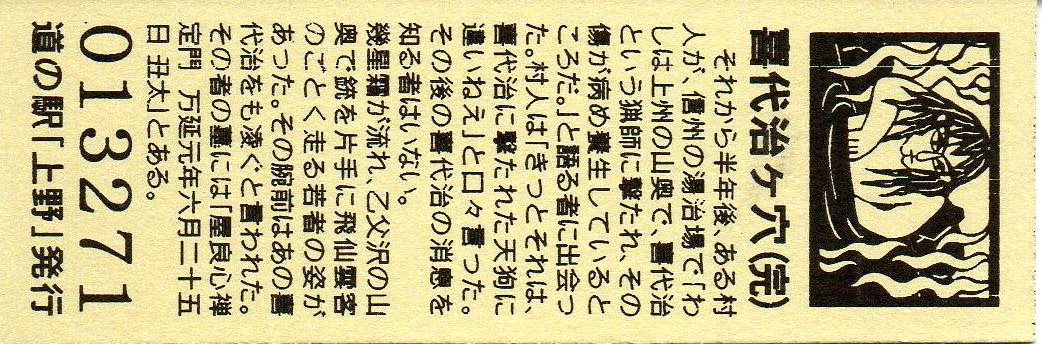 喜代治ヶ穴(完)
それから半年後、ある村
人が、信州の湯治場で「わ
しは上州の山奥で、喜代治
という猟師に撃たれ、その
傷が病め養生していると
ころだ。」と語る者に出会っ
た。村人は「きっとそれは、
喜代治に撃たれた天狗に
違いねえ」と口々言った。
その後の喜代治の消息を
知る者はいない。
幾星霜が流れ、乙父沢の山
奥で銃を片手に飛仙霊客
のごとく走る若者の姿が
あった。その腕前はあの喜
代治をも凌ぐと言われた。
その者の墓には「屋良心禅
定門 万延元年六月二十五
日 丑太」とある。
013271
道の駅「上野」発行